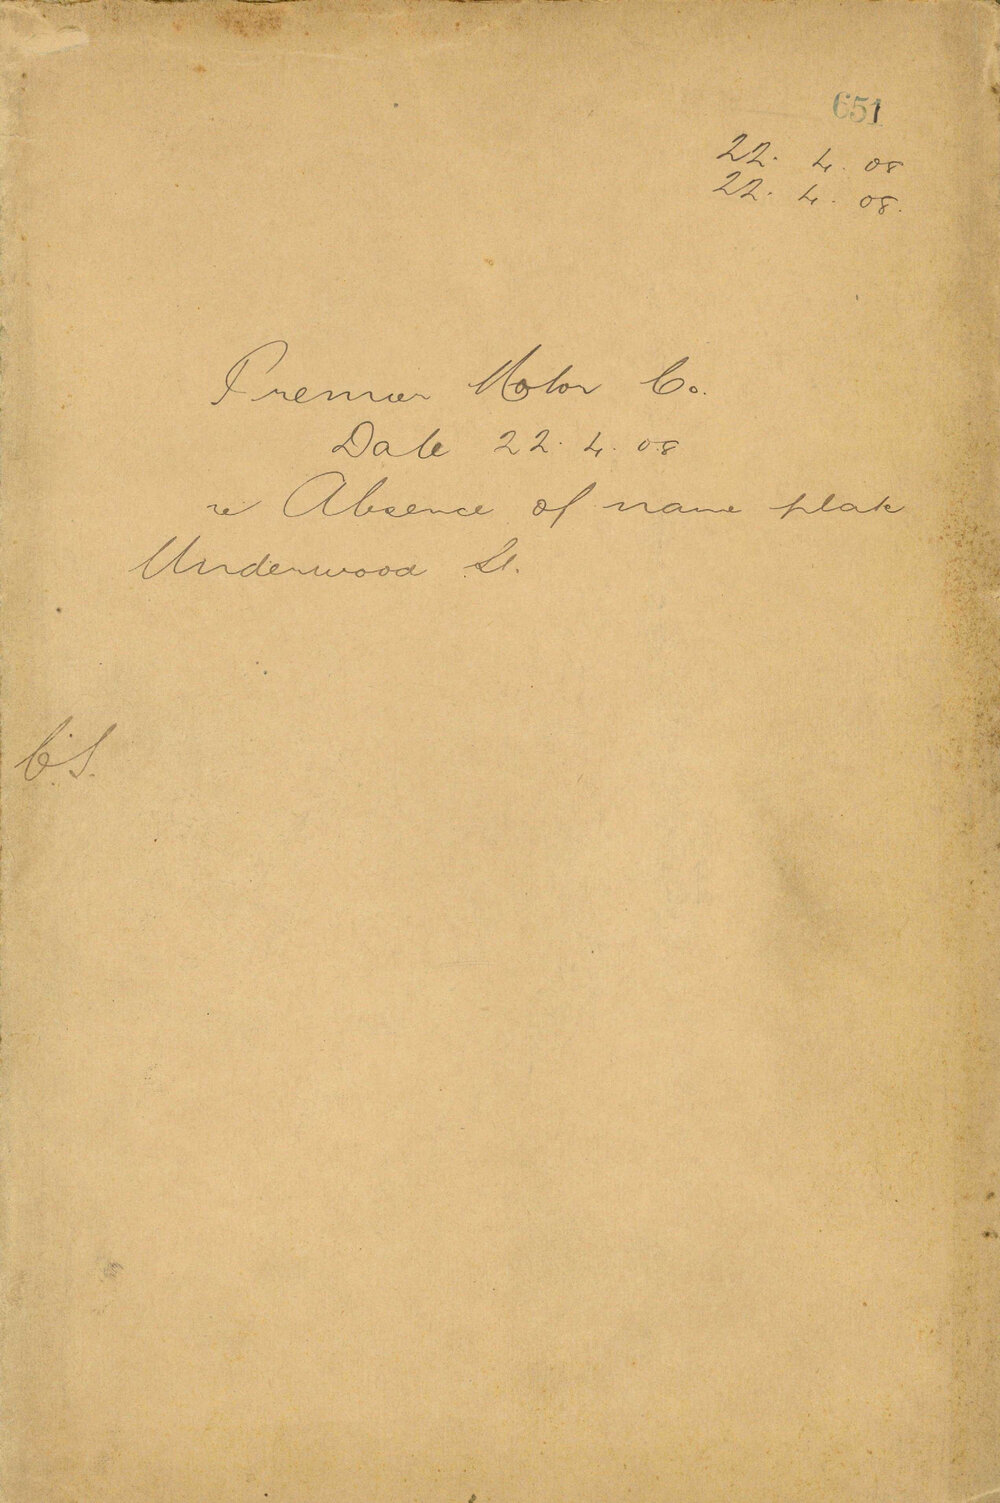 651
22. 4. 08
22. 4. 08.
Premier Motor Co.
Date 22. 4. 08
re Absence of name plate
Underwood St.
C.S.